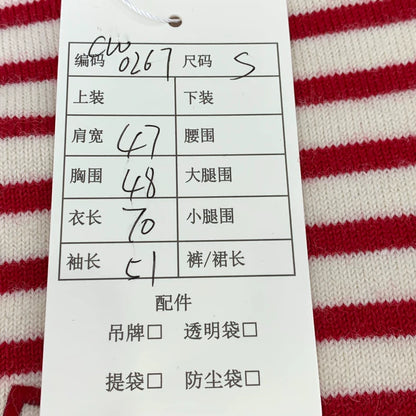 编码 CW0267 尺码 S
上装 下装
肩宽 47 腰围
胸围 48 大腿围
衣长 70 小腿围
袖长 51 裤/裙长
配件
吊牌□ 透明袋□
提袋□ 防尘袋□